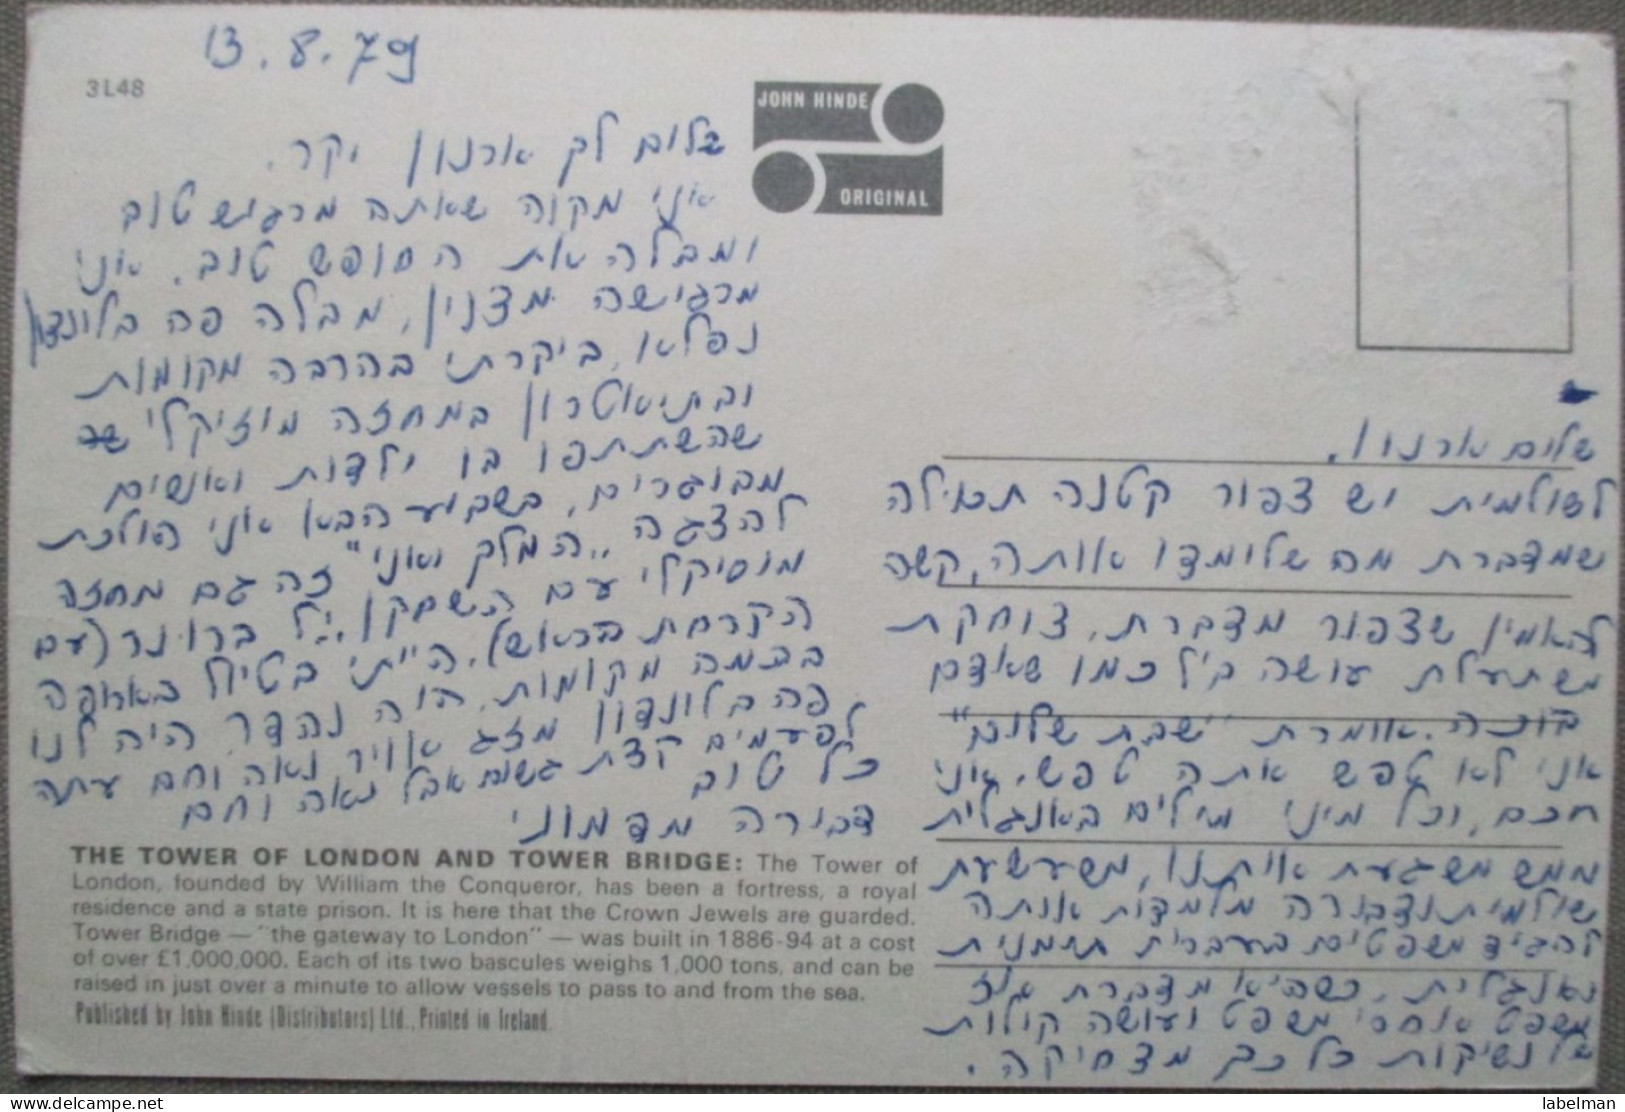 13.8.79
3L48
JOHN HINDE
ORIGINAL
שלום לך ארנון יקר.
אני מקוה שאתה מרגיש טוב
ומבלה את החופש טוב. אני
מרגישה מצוין, מבלה פה בלונדון
נפלא, ביקרתי בהרבה מקומות
ובתיאטרון במחזה מוזיקלי
שהשתתפו בו ילדות ואנשים
מבוגרים, בשבוע הבא אני הולכת
להצגה "המלך ואני" זה גם מחזה
מוסיקלי עם השחקן יול ברונר (עם
הקרחת בראש). הייתי בטיול באירופה
בכמה מקומות. היה נהדר. היה לנו
פה בלונדון מזג אויר נאה וחם עתה
לפעמים קצת גשום אבל נאה וחם
כל טוב
דבורה מדמוני
שלום ארנון,
לשולמית יש צפור קטנה תכולה
שמדברת מה שלימדו אותה, קשה
להאמין שצפור מדברת, צוחקת
משתעלת עושה ביל כמו שאדם
בוכה. אומרת "שבת שלום"
אני לא טפש אתה טפש, אני
חכם, וכל מיני מילים באנגלית
ממש משגעת אותנו, משעשעת
שולמית ודבורה מלמדות אותה
להגיד משפטים בעברית תימנית
ואנגלית. כשהיא מדברת
משפט אחרי משפט ועושה קולות
נשיקות כל כך מצחיקה.
THE TOWER OF LONDON AND TOWER BRIDGE: The Tower of
London, founded by William the Conqueror, has been a fortress, a royal
residence and a state prison. It is here that the Crown Jewels are guarded.
Tower Bridge — "the gateway to London" — was built in 1886-94 at a cost
of over £1,000,000. Each of its two bascules weighs 1,000 tons, and can be
raised in just over a minute to allow vessels to pass to and from the sea.
Published by John Hinde (Distributors) Ltd., Printed in Ireland.
labelman
www.delcampe.net